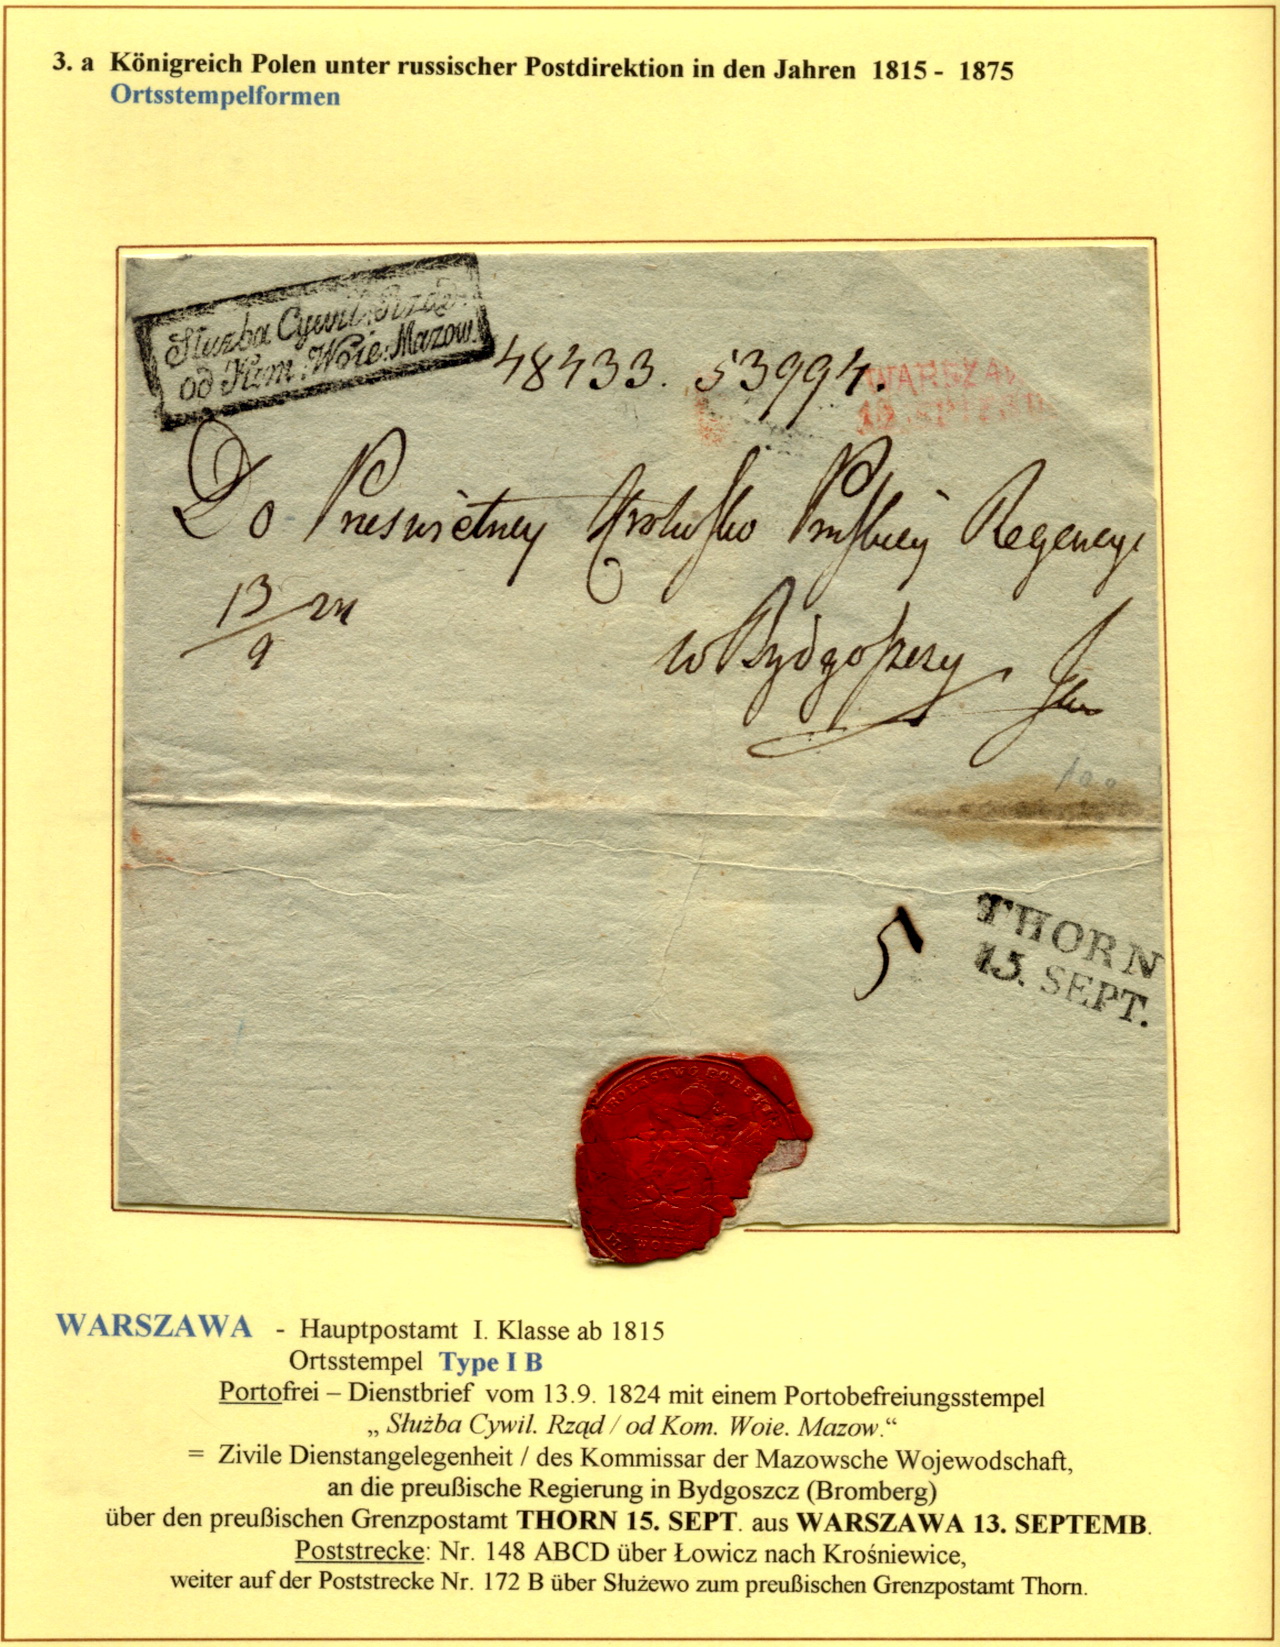 3. a Königreich Polen unter russischer Postdirektion in den Jahren 1815 - 1875
Ortsstempelformen
Służba Cywil. Rząd.
od Kom. Woie. Mazow.
48433. 53994.
WARSZAW
13. SEPTEMB.
Do Prześwietney Krolesko Pruskiey Regencyi
13/9 24
w Bydgoszczy
5
THORN
15. SEPT.
WARSZAWA - Hauptpostamt I. Klasse ab 1815
Ortsstempel Type I B
Portofrei – Dienstbrief vom 13.9. 1824 mit einem Portobefreiungsstempel
„ Służba Cywil. Rząd / od Kom. Woie. Mazow.“
= Zivile Dienstangelegenheit / des Kommissar der Mazowsche Wojewodschaft,
an die preußische Regierung in Bydgoszcz (Bromberg)
über den preußischen Grenzpostamt THORN 15. SEPT. aus WARSZAWA 13. SEPTEMB.
Poststrecke: Nr. 148 ABCD über Łowicz nach Krośniewice,
weiter auf der Poststrecke Nr. 172 B über Służewo zum preußischen Grenzpostamt Thorn.